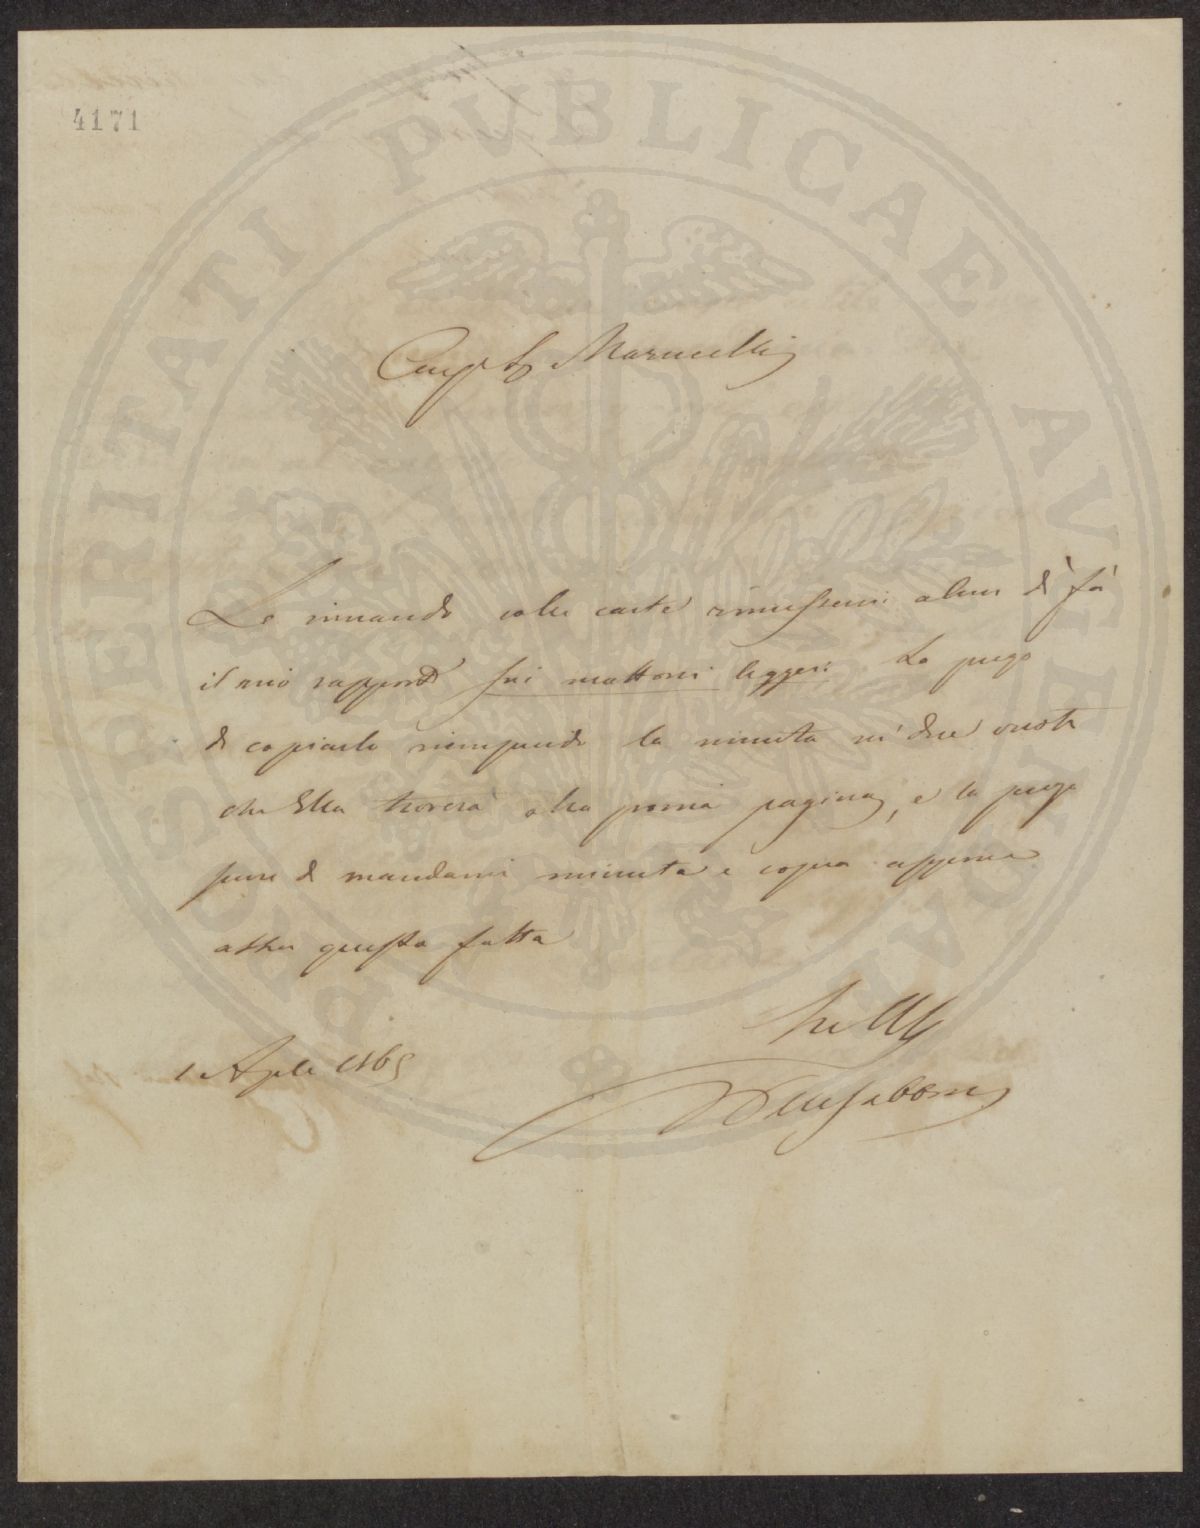 4171
PROSPERITATI PVBLICAE AVGENDAE
Marucelli
Le rimando colle carte rimessemi alcuni dì fa
il mio rapporto sui mattoni leggeri. La prego
di copiarlo riempiendo la minuta ne' due vuoti
che Ella troverà alla prima pagina, e la prego
pure di mandarmi minuta e copia appena
questa fatta
1 Aple 1865